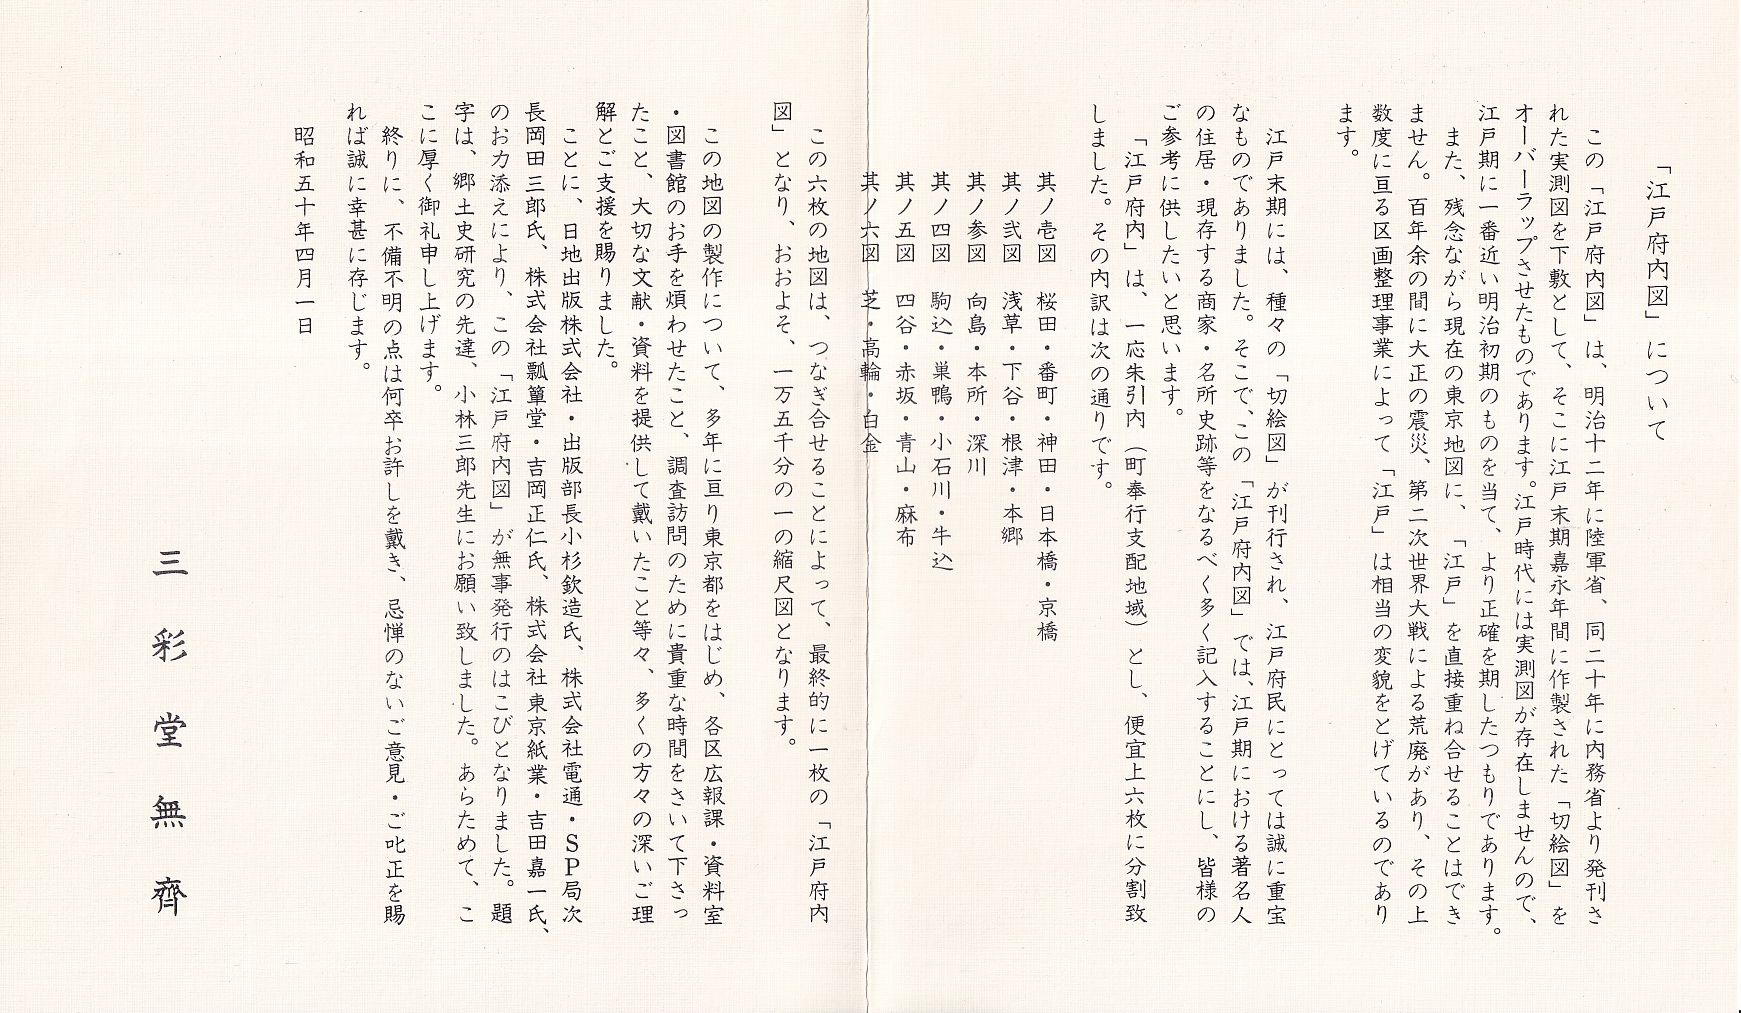 「江戸府内図」について
この「江戸府内図」は、明治十二年に陸軍省、同二十年に内務省より発刊さ
れた実測図を下敷として、そこに江戸末期嘉永年間に作製された「切絵図」を
オーバーラップさせたものであります。江戸時代には実測図が存在しませんので、
江戸期に一番近い明治初期のものを当て、より正確を期したつもりであります。
また、残念ながら現在の東京地図に、「江戸」を直接重ね合せることはでき
ません。百年余の間に大正の震災、第二次世界大戦による荒廃があり、その上
数度に亘る区画整理事業によって「江戸」は相当の変貌をとげているのであり
ます。
江戸末期には、種々の「切絵図」が刊行され、江戸府民にとっては誠に重宝
なものでありました。そこで、この「江戸府内図」では、江戸期における著名人
の住居・現存する商家・名所史跡等をなるべく多く記入することにし、皆様の
ご参考に供したいと思います。
「江戸府内」は、一応朱引内（町奉行支配地域）とし、便宜上六枚に分割致
しました。その内訳は次の通りです。
其ノ壱図　桜田・番町・神田・日本橋・京橋
其ノ弐図　浅草・下谷・根津・本郷
其ノ参図　向島・本所・深川
其ノ四図　駒込・巣鴨・小石川・牛込
其ノ五図　四谷・赤坂・青山・麻布
其ノ六図　芝・高輪・白金
この六枚の地図は、つなぎ合せることによって、最終的に一枚の「江戸府内
図」となり、おおよそ、一万五千分の一の縮尺図となります。
この地図の製作について、多年に亘り東京都をはじめ、各区広報課・資料室
・図書館のお手を煩わせたこと、調査訪問のために貴重な時間をさいて下さっ
たこと、大切な文献・資料を提供して戴いたこと等々、多くの方々の深いご理
解とご支援を賜りました。
ことに、日地出版株式会社・出版部長小杉欽造氏、株式会社電通・ＳＰ局次
長岡田三郎氏、株式会社瓢簞堂・吉岡正仁氏、株式会社東京紙業・吉田嘉一氏、
のお力添えにより、この「江戸府内図」が無事発行のはこびとなりました。題
字は、郷土史研究の先達、小林三郎先生にお願い致しました。あらためて、こ
こに厚く御礼申し上げます。
終りに、不備不明の点は何卒お許しを戴き、忌憚のないご意見・ご叱正を賜
れば誠に幸甚に存じます。
昭和五十年四月一日
三彩堂無齊